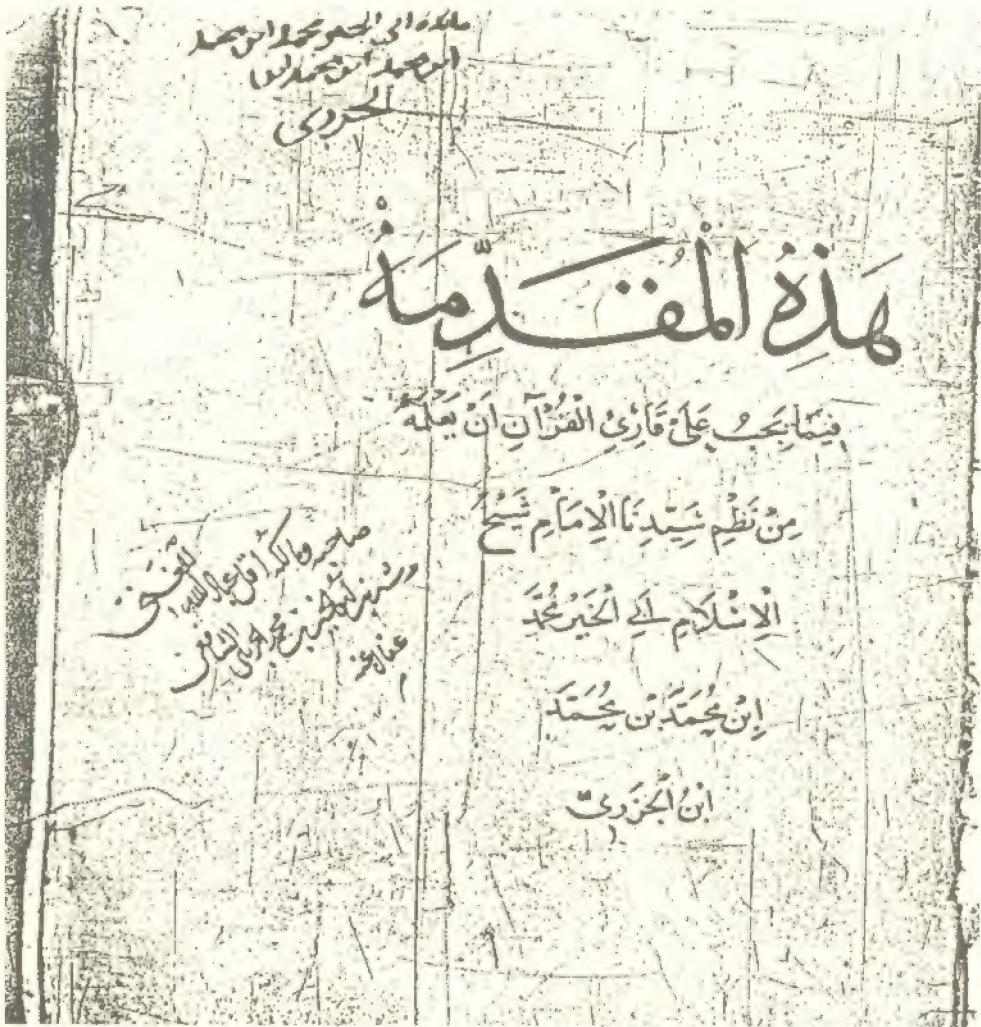 ابى الخير محمد ابن محمد
ابن محمد ابن محمد
الجزري
هَذِهِ الْمُقَدِّمَةُ
فِيمَا يَجِبُ عَلَىٰ قَارِئِ الْقُرْآنِ اَنْ يَعْلَمَهُ
مِنْ نَظْمِ سَيِّدِنَا الْاِمَامِ شَيْخِ
الْاِسْلَامِ اَبِي الْخَيْرِ مُحَمَّدِ
اِبْنِ مُحَمَّدِ بْنِ مُحَمَّدِ
ابْنُ الْجَزَرِيّ
صاحبه ومالكه
محمد
عنه